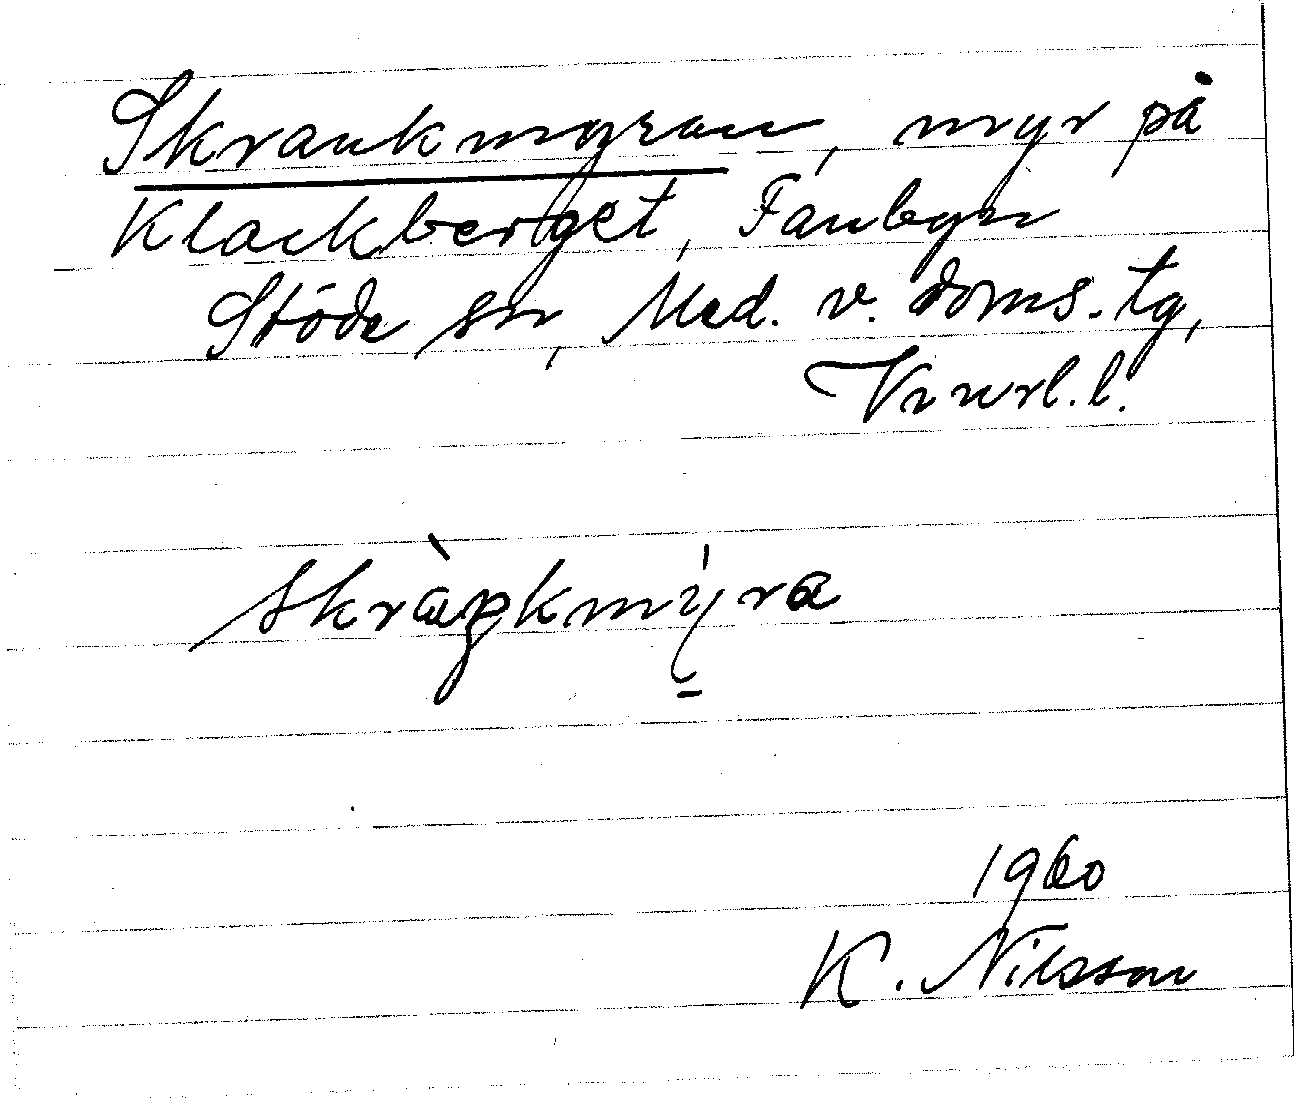 Skrankmyran, myr på
Klackberget, Fanbyn
Stöde sn, Med. v. doms. tg,
Vnrl. l.
skràŋkmýra
1960
K. Nilsson